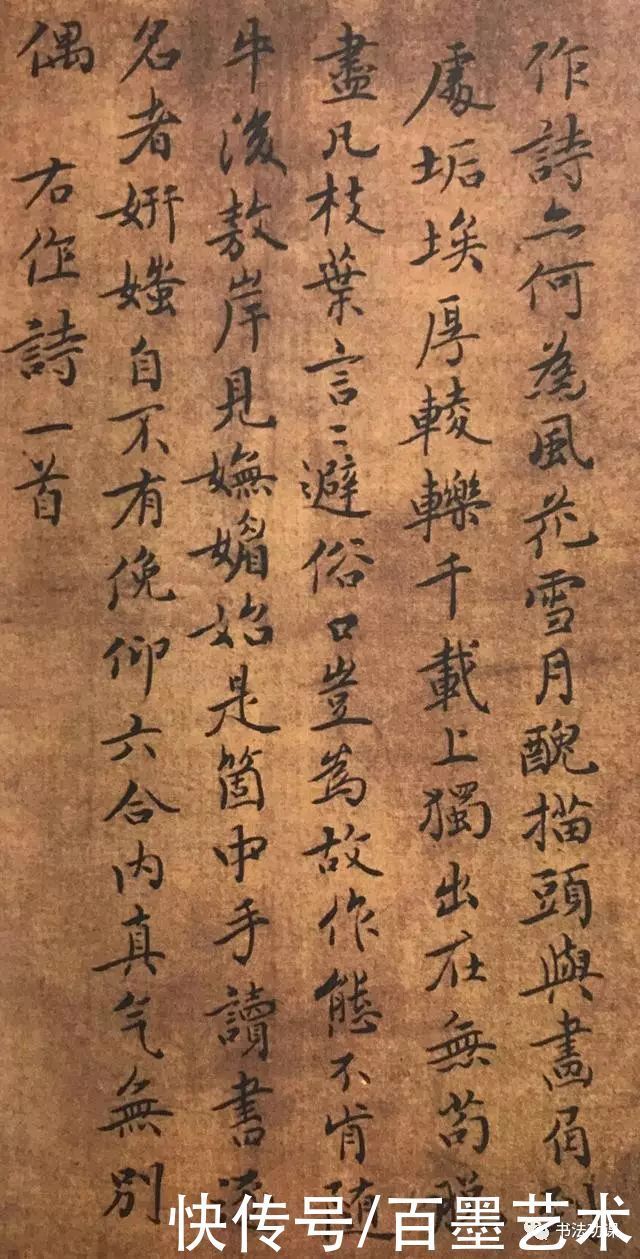 作詩亦何為風花雪月醜描頭與畫角到
處垢埃厚輘轢千載上獨出在無苟脫
盡凡枝葉言〻避俗口豈為故作態不肯隨
牛後敖岸見嫵媚始是箇中手讀書
名者妍媸自不有俛仰六合內真气無別
偶 右作詩一首
快传号/百墨艺术
书法